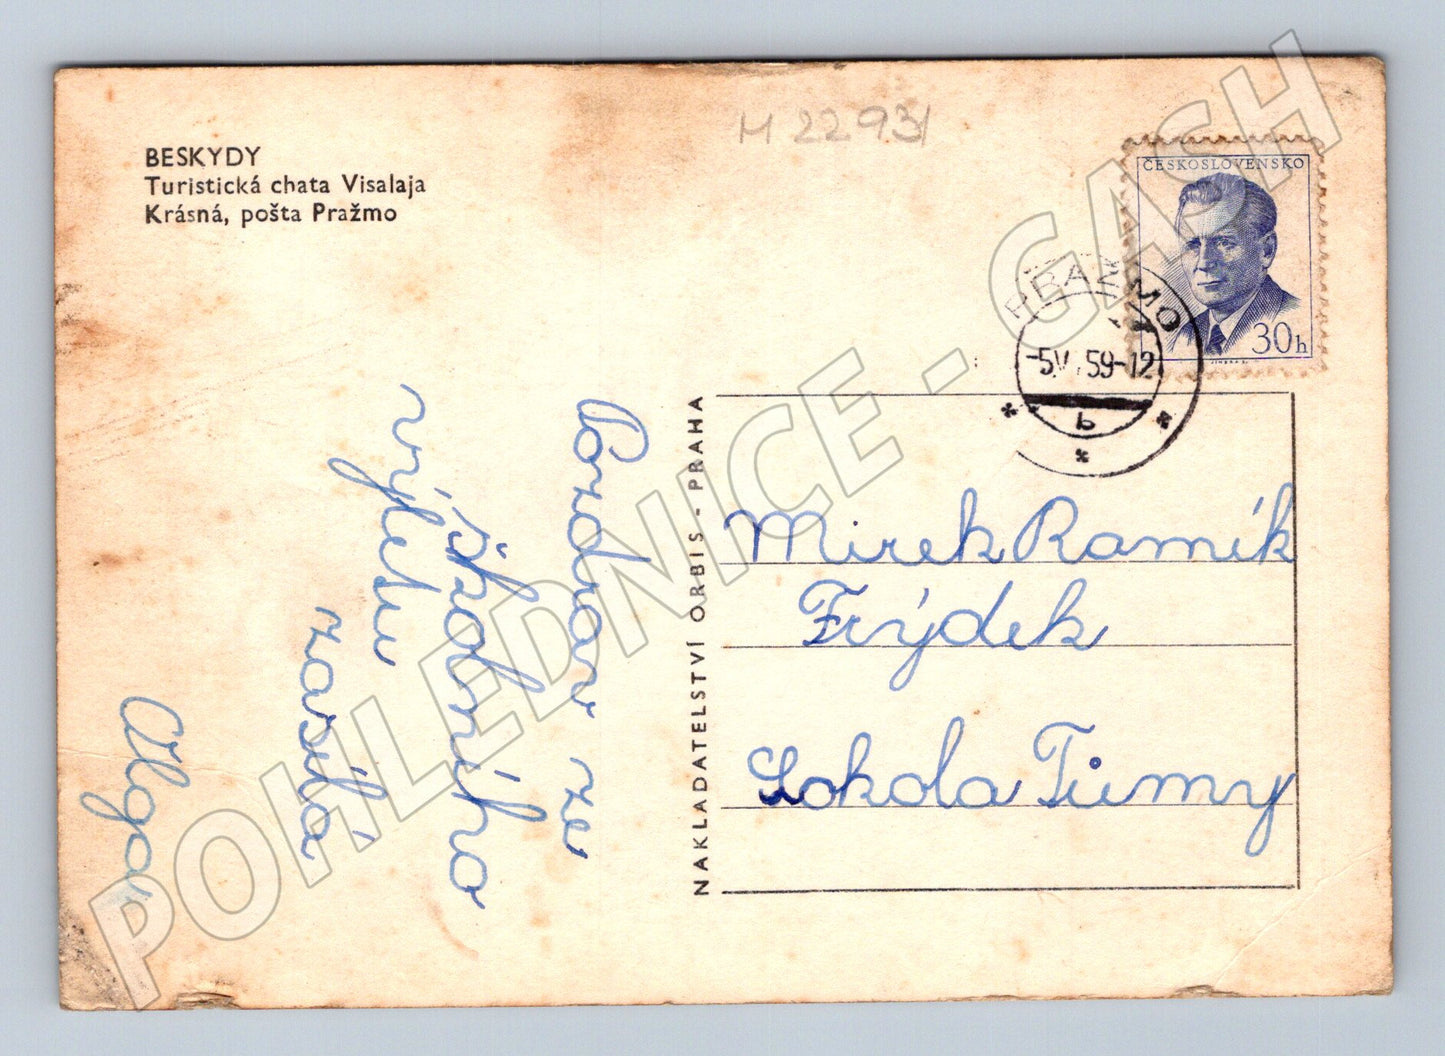 BESKYDY
Turistická chata Visalaja
Krásná, pošta Pražmo
M 22931
ČESKOSLOVENSKO
30h
PRAŽMO
-5.V.59-12
b
Pozdrav ze
školního
výletu
zasílá
Olga
NAKLADATELSTVÍ ORBIS - PRAHA
Mirek Ramík
Frýdek
Sokola Tůmy
POHLEDNICE - GASH